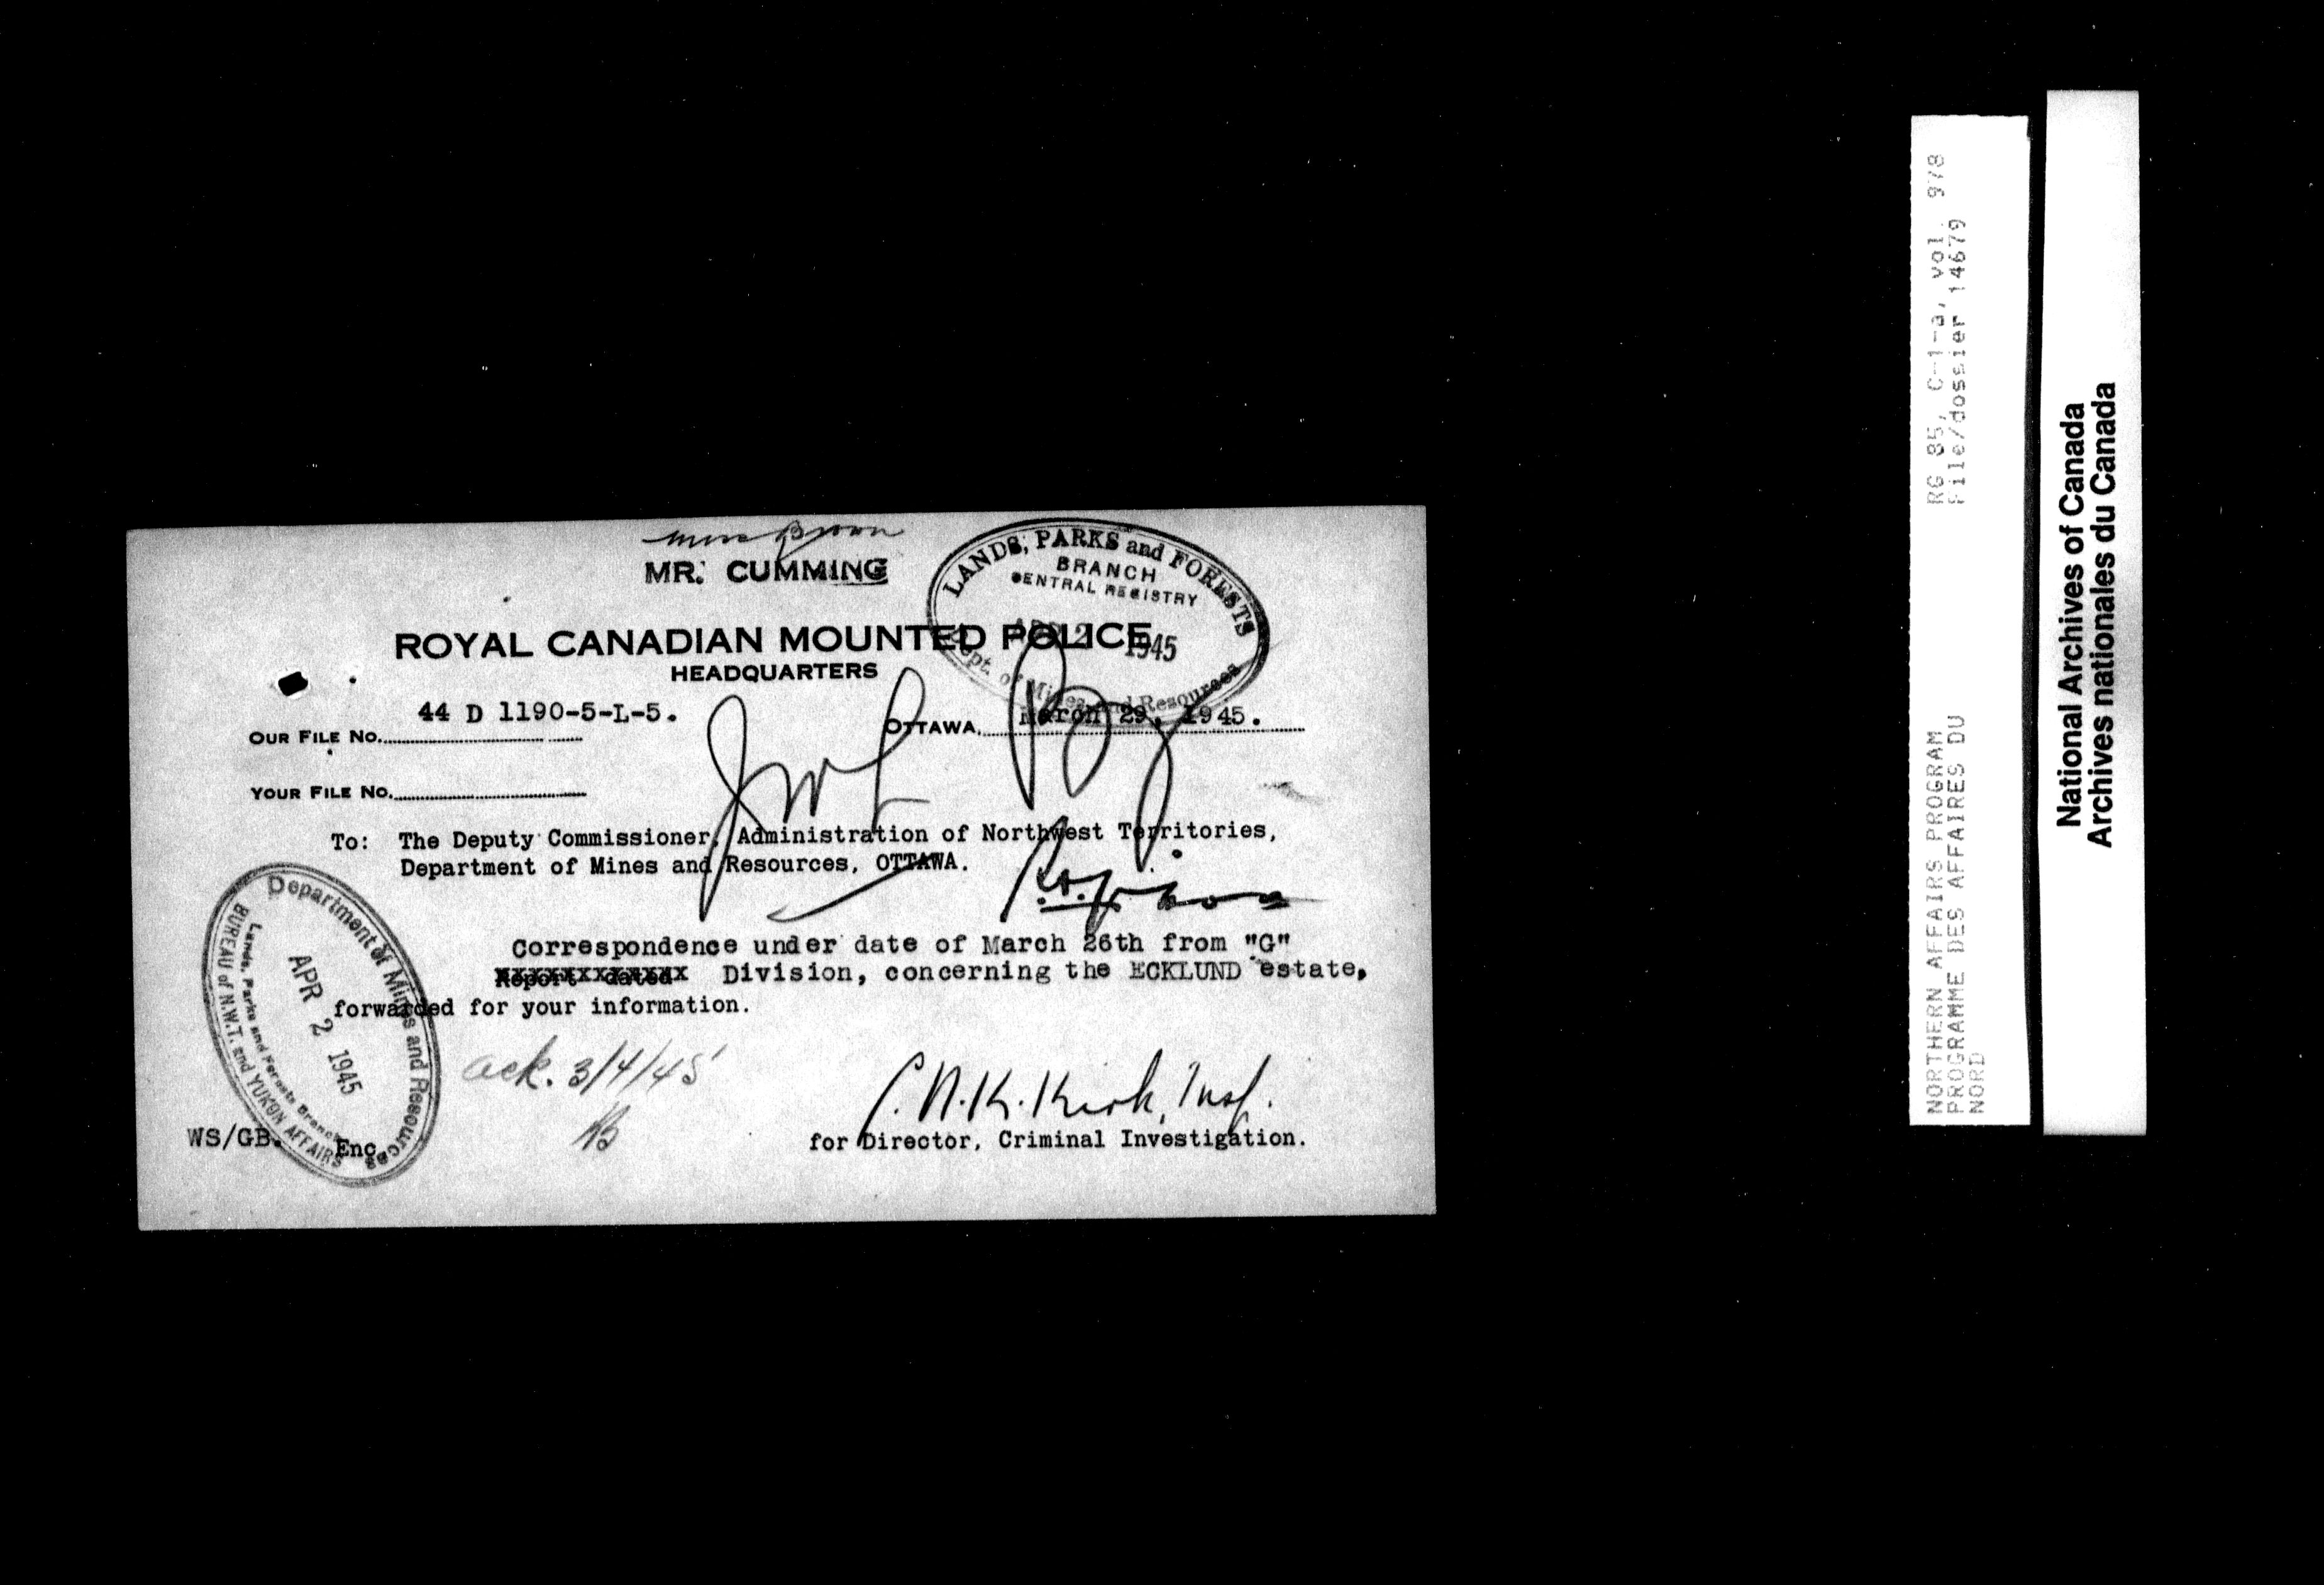 Miss Brown
MR. CUMMING
LANDS, PARKS and FORESTS
BRANCH
CENTRAL REGISTRY
APR 2 1945
Dept. of Mines and Resources
ROYAL CANADIAN MOUNTED POLICE
HEADQUARTERS
44 D 1190-5-L-5.
OUR FILE NO.
OTTAWA, March 29, 1945.
YOUR FILE NO.
To: The Deputy Commissioner, Administration of Northwest Territories,
Department of Mines and Resources, OTTAWA.
Correspondence under date of March 26th from "G"
Report dated Division, concerning the ECKLUND estate,
forwarded for your information.
Department of Mines and Resources
Lands, Parks and Forests Branch
BUREAU of N.W.T. and YUKON AFFAIRS
APR 2 1945
ack. 3/4/45
C.N.K. Kirk, Insp.
for Director, Criminal Investigation.
WS/GB.
Enc.
RG 85, C-1-a, vol. 978
File/dossier 14679
NORTHERN AFFAIRS PROGRAM
PROGRAMME DES AFFAIRES DU
NORD
National Archives of Canada
Archives nationales du Canada